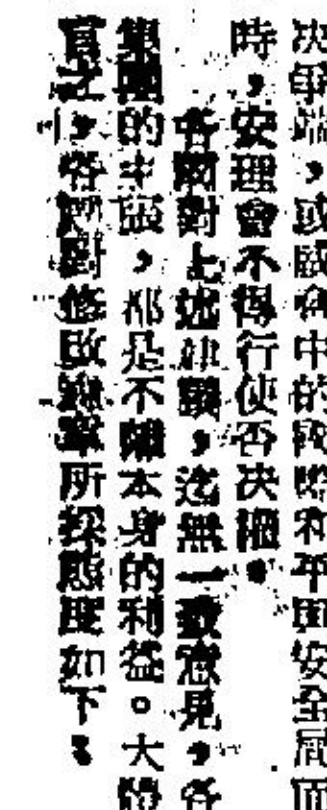 決爭端，或威脅中的國際和平與安全局面
時，安理會不得行使否決權。
各國對上述建議，迄無一致意見，各
集團的主張，都是不離本身的利益。大體
言之，各國對修改憲章所採態度如下：